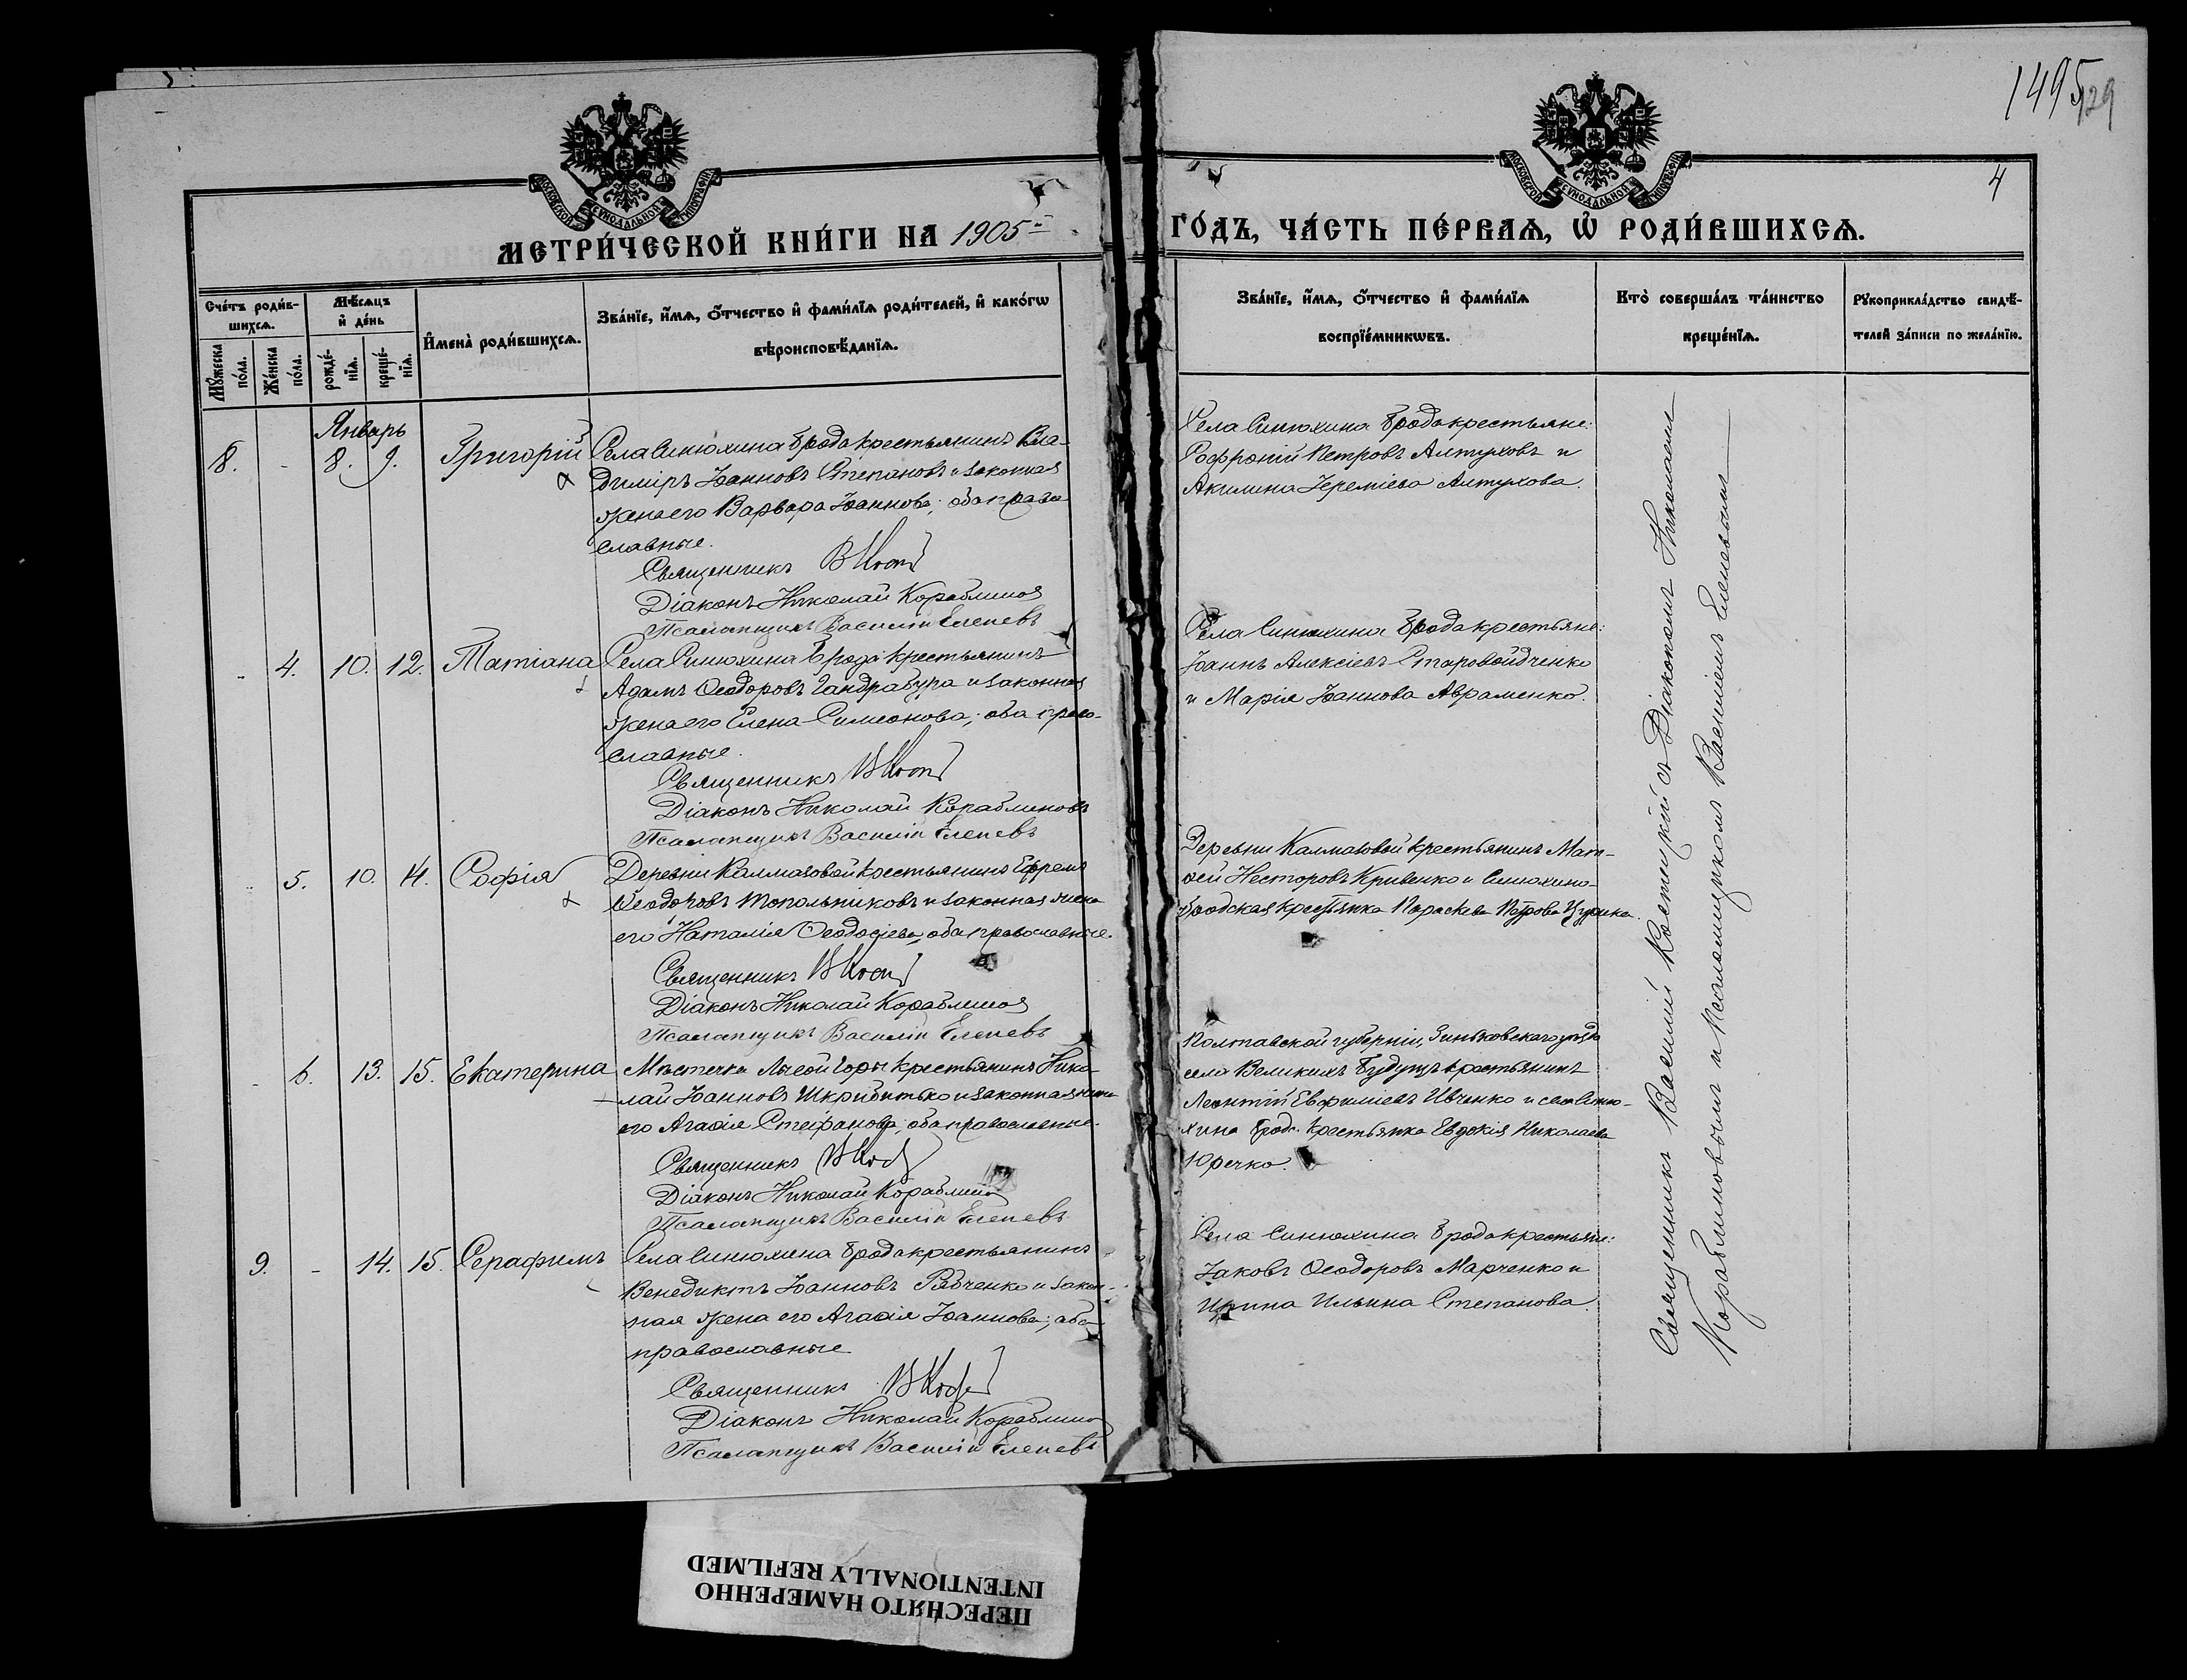 1495
129
4
МОСКОВСКОЙ СѴНОДАЛЬНОЙ ТИПОГРАФІИ
МОСКОВСКОЙ СѴНОДАЛЬНОЙ ТИПОГРАФІИ
МЕТРИ́ЧЕСКОЙ КНИ́ГИ НА 1905 й ГО́ДЪ, ЧА́СТЬ ПЕ́РВАѦ, Ѡ҆ РОДИ́ВШИХСѦ.
Сче́тъ роди́в-
шихсѧ.
Мꙋ́жеска по́ла.
Же́нска по́ла.
Мѣ́сѧцъ
и҆ де́нь
рожде́-
нїѧ.
креще́-
нїѧ.
И҆мена̀ роди́вшихсѧ.
Зва́нїе, и҆́мѧ, ѻ҆́тчество и҆ фами́лїѧ роди́телей, и҆ како́гѡ
вѣроисповѣ́данїѧ.
Зва́нїе, и҆́мѧ, ѻ҆́тчество и҆ фами́лїѧ
воспрїе́мникѡвъ.
Кто̀ соверша́лъ та́инство
креще́нїѧ.
Рꙋкоприкла́дство свидѣ́-
телей за́писи по жела́нїю.
Январь
8. - 8. 9. Григорій
Села Синюхина Брода крестьянинъ Вла-
диміръ Іоанновъ Степановъ и законная
жена его Варвара Іоаннова; оба право
славные.
Священникъ
Діаконъ Николай Кораблиновъ
Псаломщикъ Василій Елепевъ
Села Синюхина Брода крестьяне:
Софроній Петровъ Алтуховъ и
Акилина Іереміева Алтухова.
- 4. 10. 12. Татіана
Села Синюхина Брода крестьянинъ
Адамъ Ѳеодоровъ Гандрабура и законная
жена его Елена Симеонова; оба право-
славные.
Священникъ
Діаконъ Николай Кораблиновъ
Псаломщикъ Василій Елепевъ
Села Синюхина Брода крестьяне:
Іоаннъ Алексіевъ Старовойдченко
и Марія Іоаннова Авраменко.
- 5. 10. 14. Софія
Деревни Калмазовой крестьянинъ Ефремъ
Ѳеодоровъ Топольниковъ и законная жена
его Наталія Ѳеодосіева; оба православные.
Священникъ
Діаконъ Николай Кораблиновъ
Псаломщикъ Василій Елепевъ
Деревни Калмазовой крестьянинъ Мат-
ѳей Несторовъ Кривенко и Синюхино-
Бродская крестьянка Параскева Петрова
- 6. 13. 15. Екатерина
Мѣстечка Лысой Горы крестьянинъ Нико
лай Іоанновъ и законная жена
его Агаѳія Стефанова; оба православные.
Священникъ
Діаконъ Николай Кораблиновъ
Псаломщикъ Василій Елепевъ
Полтавской губерніи, Зиньковскаго уѣзда
села Великихъ Будищъ крестьянинъ
Леонтій Евфиміевъ Ивченко и села Синю-
хина Брода крестьянка Евдокія Николаева
Юречко.
9. - 14. 15. Серафимъ
Села Синюхина Брода крестьянинъ
Венедиктъ Іоанновъ Рябченко и закон-
ная жена его Агаѳія Іоаннова; оба
православные
Священникъ
Діаконъ Николай Кораблиновъ
Псаломщикъ Василій Елепевъ
Села Синюхина Брода крестьяне:
Іаковъ Ѳеодоровъ Марченко и
Ирина Ильина Степанова.
Священникъ Василій Костецкій съ Діакономъ Николаемъ
Кораблиновымъ и Псаломщикомъ Василіемъ Елепевымъ
ПЕРЕСНЯТО НАМЕРЕННО
INTENTIONALLY REFILMED